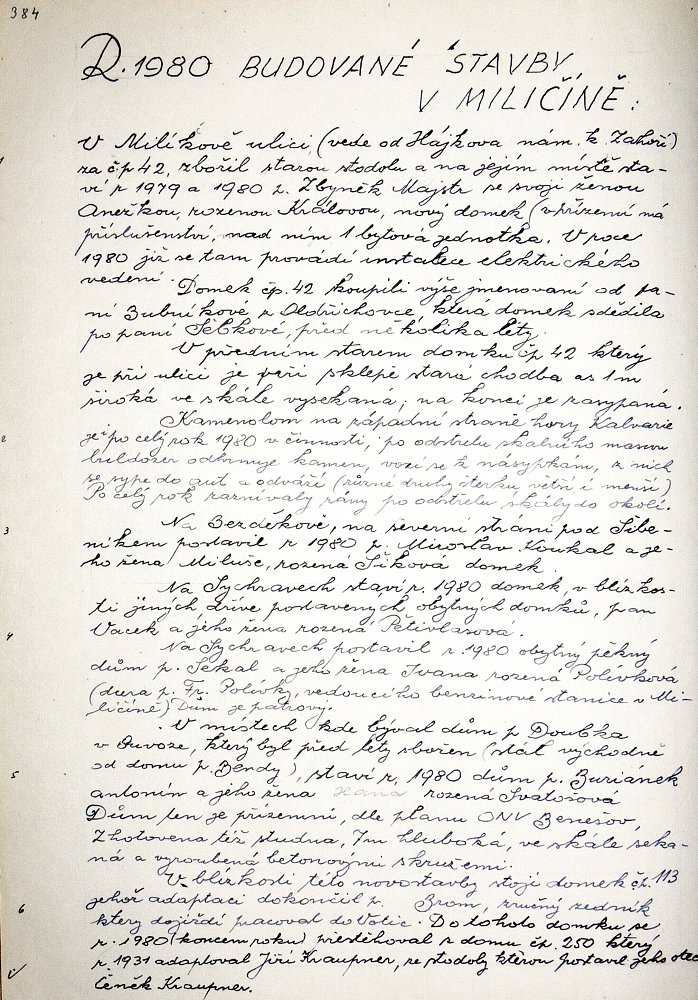 384
R. 1980 BUDOVANÉ STAVBY
V MILIČÍNĚ:
V Milíkově ulici, (vede od Hájkova nám. k Zahoří)
1
za čp 42, zbořil starou stodolu a na jejím místě sta-
ví r 1979 a 1980 p. Zbyněk Majstr se svojí ženou
Anežkou, rozenou Královou, nový domek (v přízemí má
příslušenství, nad ním 1 bytová jednotka. V roce
1980 již se tam provádí instalace elektrického
vedení.
Domek čp. 42 koupili výše jmenovaní od pa-
ní Bubníkové z Oldřichovce, která domek sdědila
po paní Sélkové, před několika léty.
V předním starém domku čp 42 který
je při ulici je při sklepě stará chodba as 1m
široká ve skále vysekaná; na konci je zasypaná.
Kamenolom na západní straně hory Kalvarie
2
je po celý rok 1980 v činnosti, po odstřelu skalního masivu
buldozer odhrnuje kámen, vozí se k násypkám, z nich
se sype do aut a odváží (různé druhy štěrku větší i menší)
Po celý rok zaznívaly rány po odstřelu skály do okolí.
Na Bezděkově, na severní stráni pod Šibe-
3
níkem postavil r 1980 p. Miroslav Koukal a je-
ho žena Miluše, rozená Šíková domek.
Na Sychravech staví r. 1980 domek, v blízkos-
ti jiných dříve postavených, obytných domků, pan
4
Vacek a jeho žena rozená Pětivlasová.
Na Sychravech postavil r 1980 obytný pěkný
dům p. Sekal a jeho žena Ivana rozená Polívková
(dcera p. Fr. Polívky, vedoucího benzinové stanice v Mi-
ličíně) Dům je patrový.
V místech kde býval dům p Doubka
v Úvoze, který byl před léty zbořen (stál východně
5
od domu p. Bendy), staví r. 1980 dům p. Buriánek
antonín a jeho žena Hana rozená Svatošová
Dům ten je přízemní, dle plánu ONV Benešov,
Zhotovena též studna, 7m hluboká, ve skále seka-
ná a vyroubená betonovými skružemi.
V blízkosti této novostavby stojí domek čp. 113
jehož adaptaci dokončil p. Brom, zručný zedník
6
který dojíždí pracovat do Votic. Do tohoto domku se
r. 1980 (koncem roku) přestěhoval z domu čp. 250 který
r 1931 adaptoval Jiří Kraupner, ze stodoly kterou postavil jeho otec
Čeněk Kraupner.